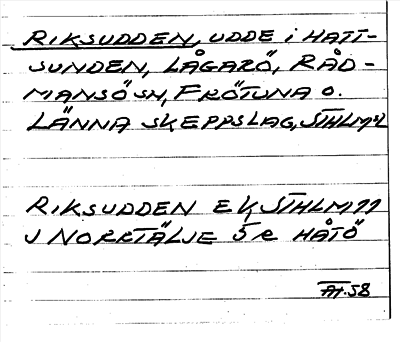 RIKSUDDEN, UDDE i HATT-
SUNDEN, LÅGARÖ, RÅD-
MANSÖ SN, FRÖTUNA O.
LÄNNA SKEPPSLAG, STHLM
RIKSUDDEN EK, STHLM 99
J NORRTÄLJE 5 R HÅTÖ
58